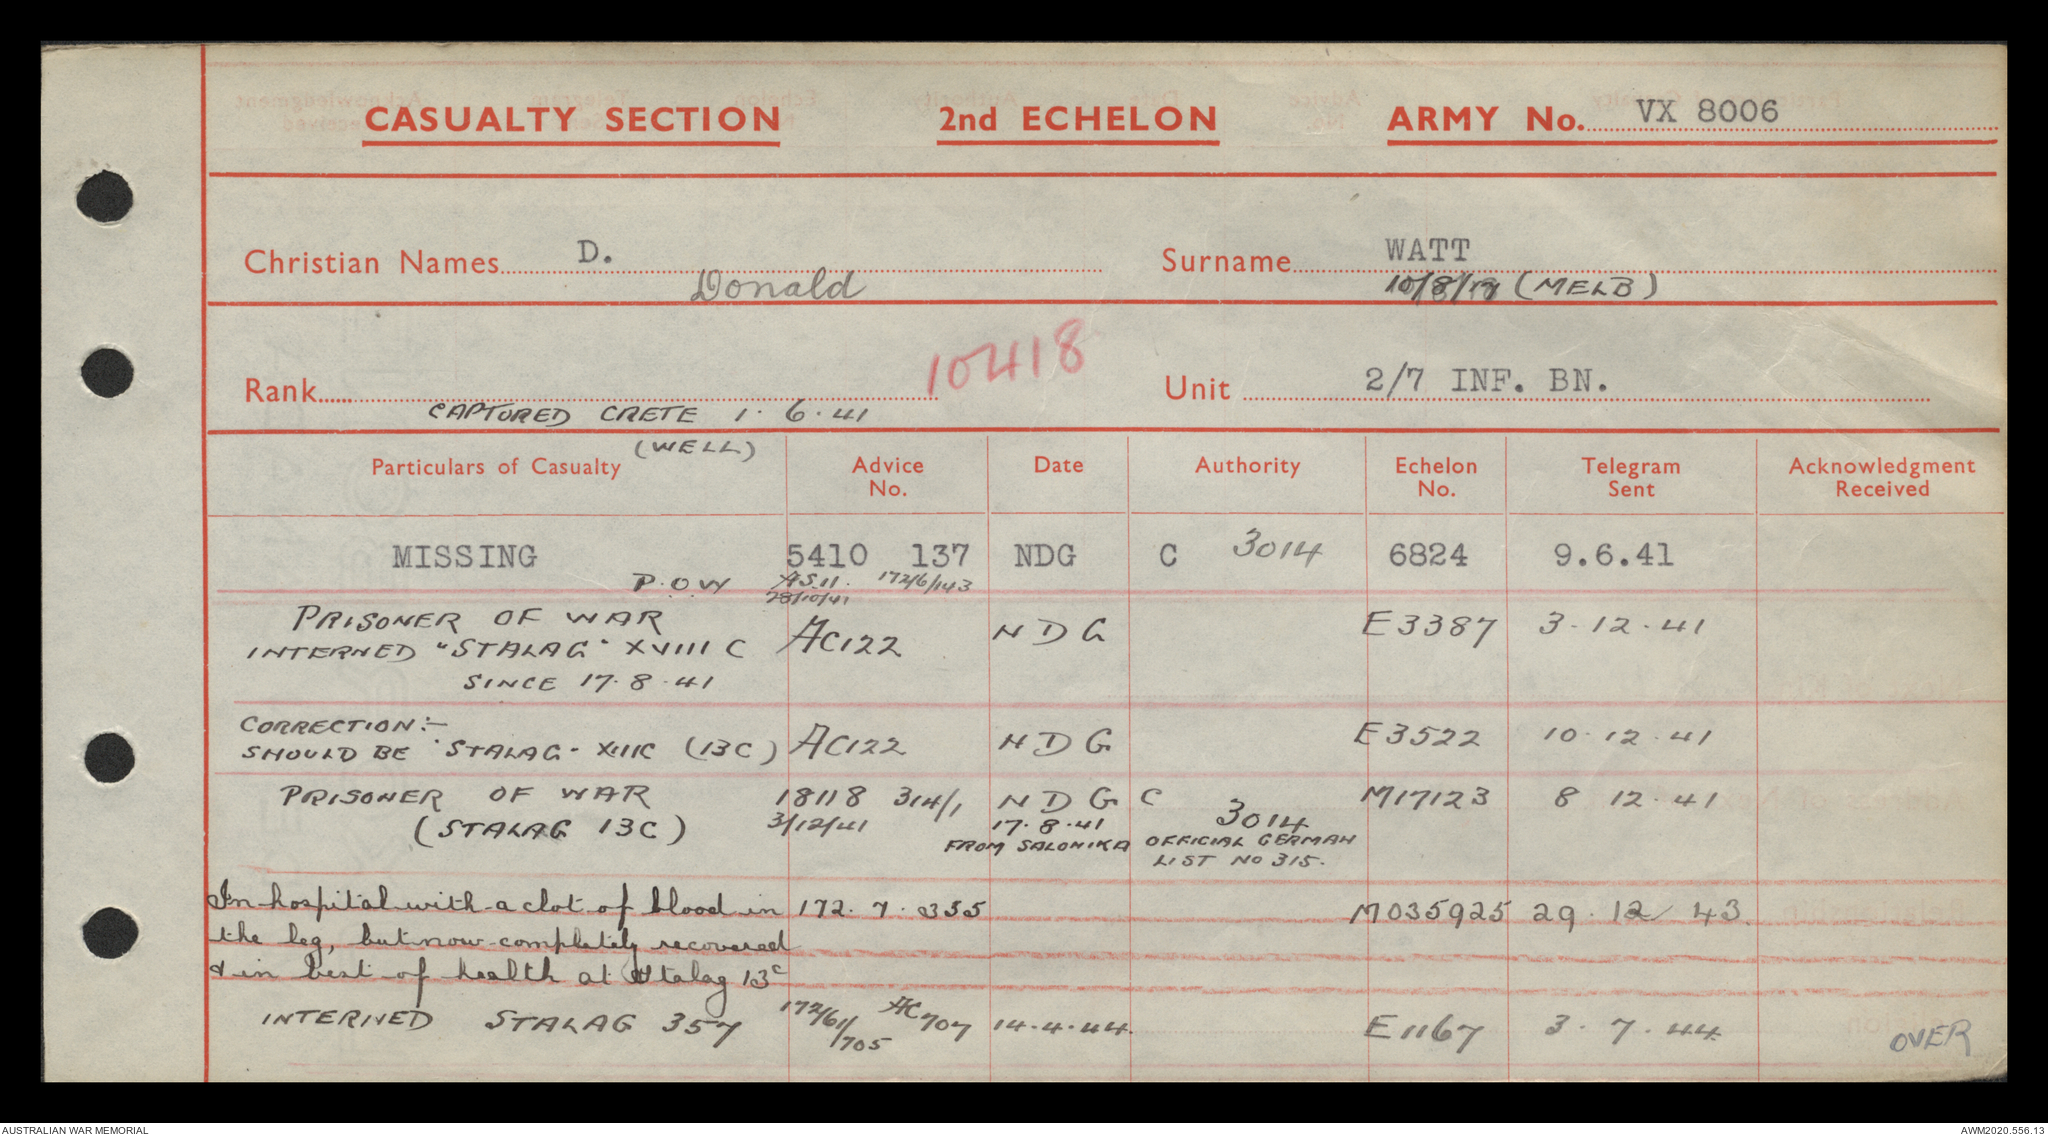 CASUALTY SECTION 2nd ECHELON ARMY No. VX 8006
Christian Names D. Surname WATT
Donald 10/8/18 (MELB)
10418
Rank Unit 2/7 INF. BN.
CAPTURED CRETE 1.6.41
(WELL)
Particulars of Casualty Advice No. Date Authority Echelon No. Telegram Sent Acknowledgment Received
MISSING 5410 137 NDG C 3014 6824 9.6.41
P.O.W A.S.11. 172/6/143
28/10/41
PRISONER OF WAR
INTERNED "STALAG" XVIII C AC122 NDG E3387 3.12.41
SINCE 17.8.41
CORRECTION:-
SHOULD BE "STALAG" XIIIC (13C) AC122 NDG E3522 10.12.41
PRISONER OF WAR 18118 314/1 NDG C M17123 8 12.41
(STALAG 13C) 3/12/41 17.8.41 3014
FROM SALONIKA OFFICIAL GERMAN
LIST NO 315.
In hospital with a clot of blood in 172.7.335 M035925 29.12 43
the leg, but now completely recovered
& in best of health at Stalag 13c
INTERNED STALAG 357 172/61/705 AC707 14.4.44. E1167 3.7.44
OVER
AUSTRALIAN WAR MEMORIAL AWM2020.556.13